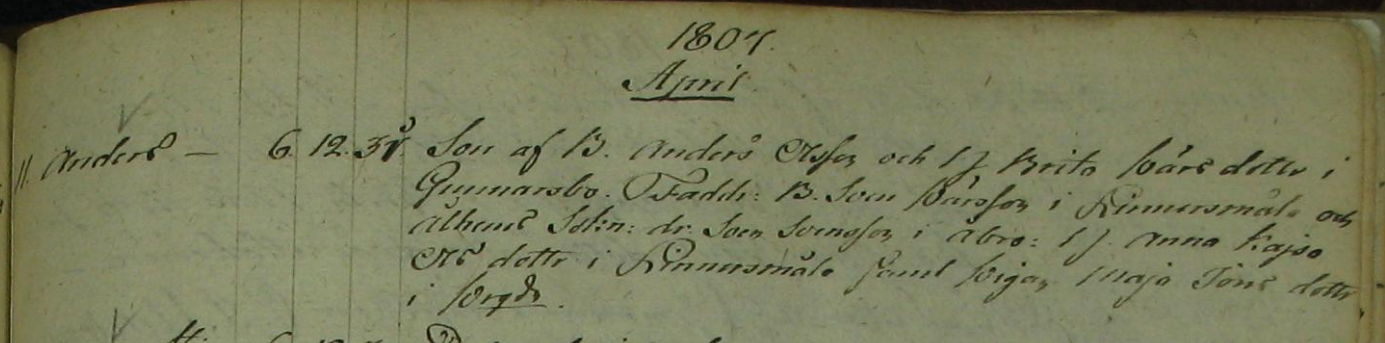 1807.
April.
11. Anders — 6. 12. 35 Son af B. Anders och H. Brita Lars dotter i
Gunnarsbo. Faddr: B. Sven Larsson i Rinnersmåla och
Älhems Sokn: dr. Sven Svensson i Åbro: H. Anna Kajsa
dotter i Rinnersmåla samt Pigan Maja Jöns dotter
i